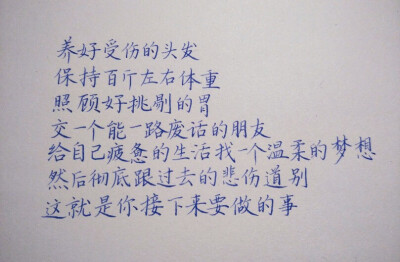 养好受伤的头发
保持百斤左右体重
照顾好挑剔的胃
交一个能一路废话的朋友
给自己疲惫的生活找一个温柔的梦想
然后彻底跟过去的悲伤道别
这就是你接下来要做的事